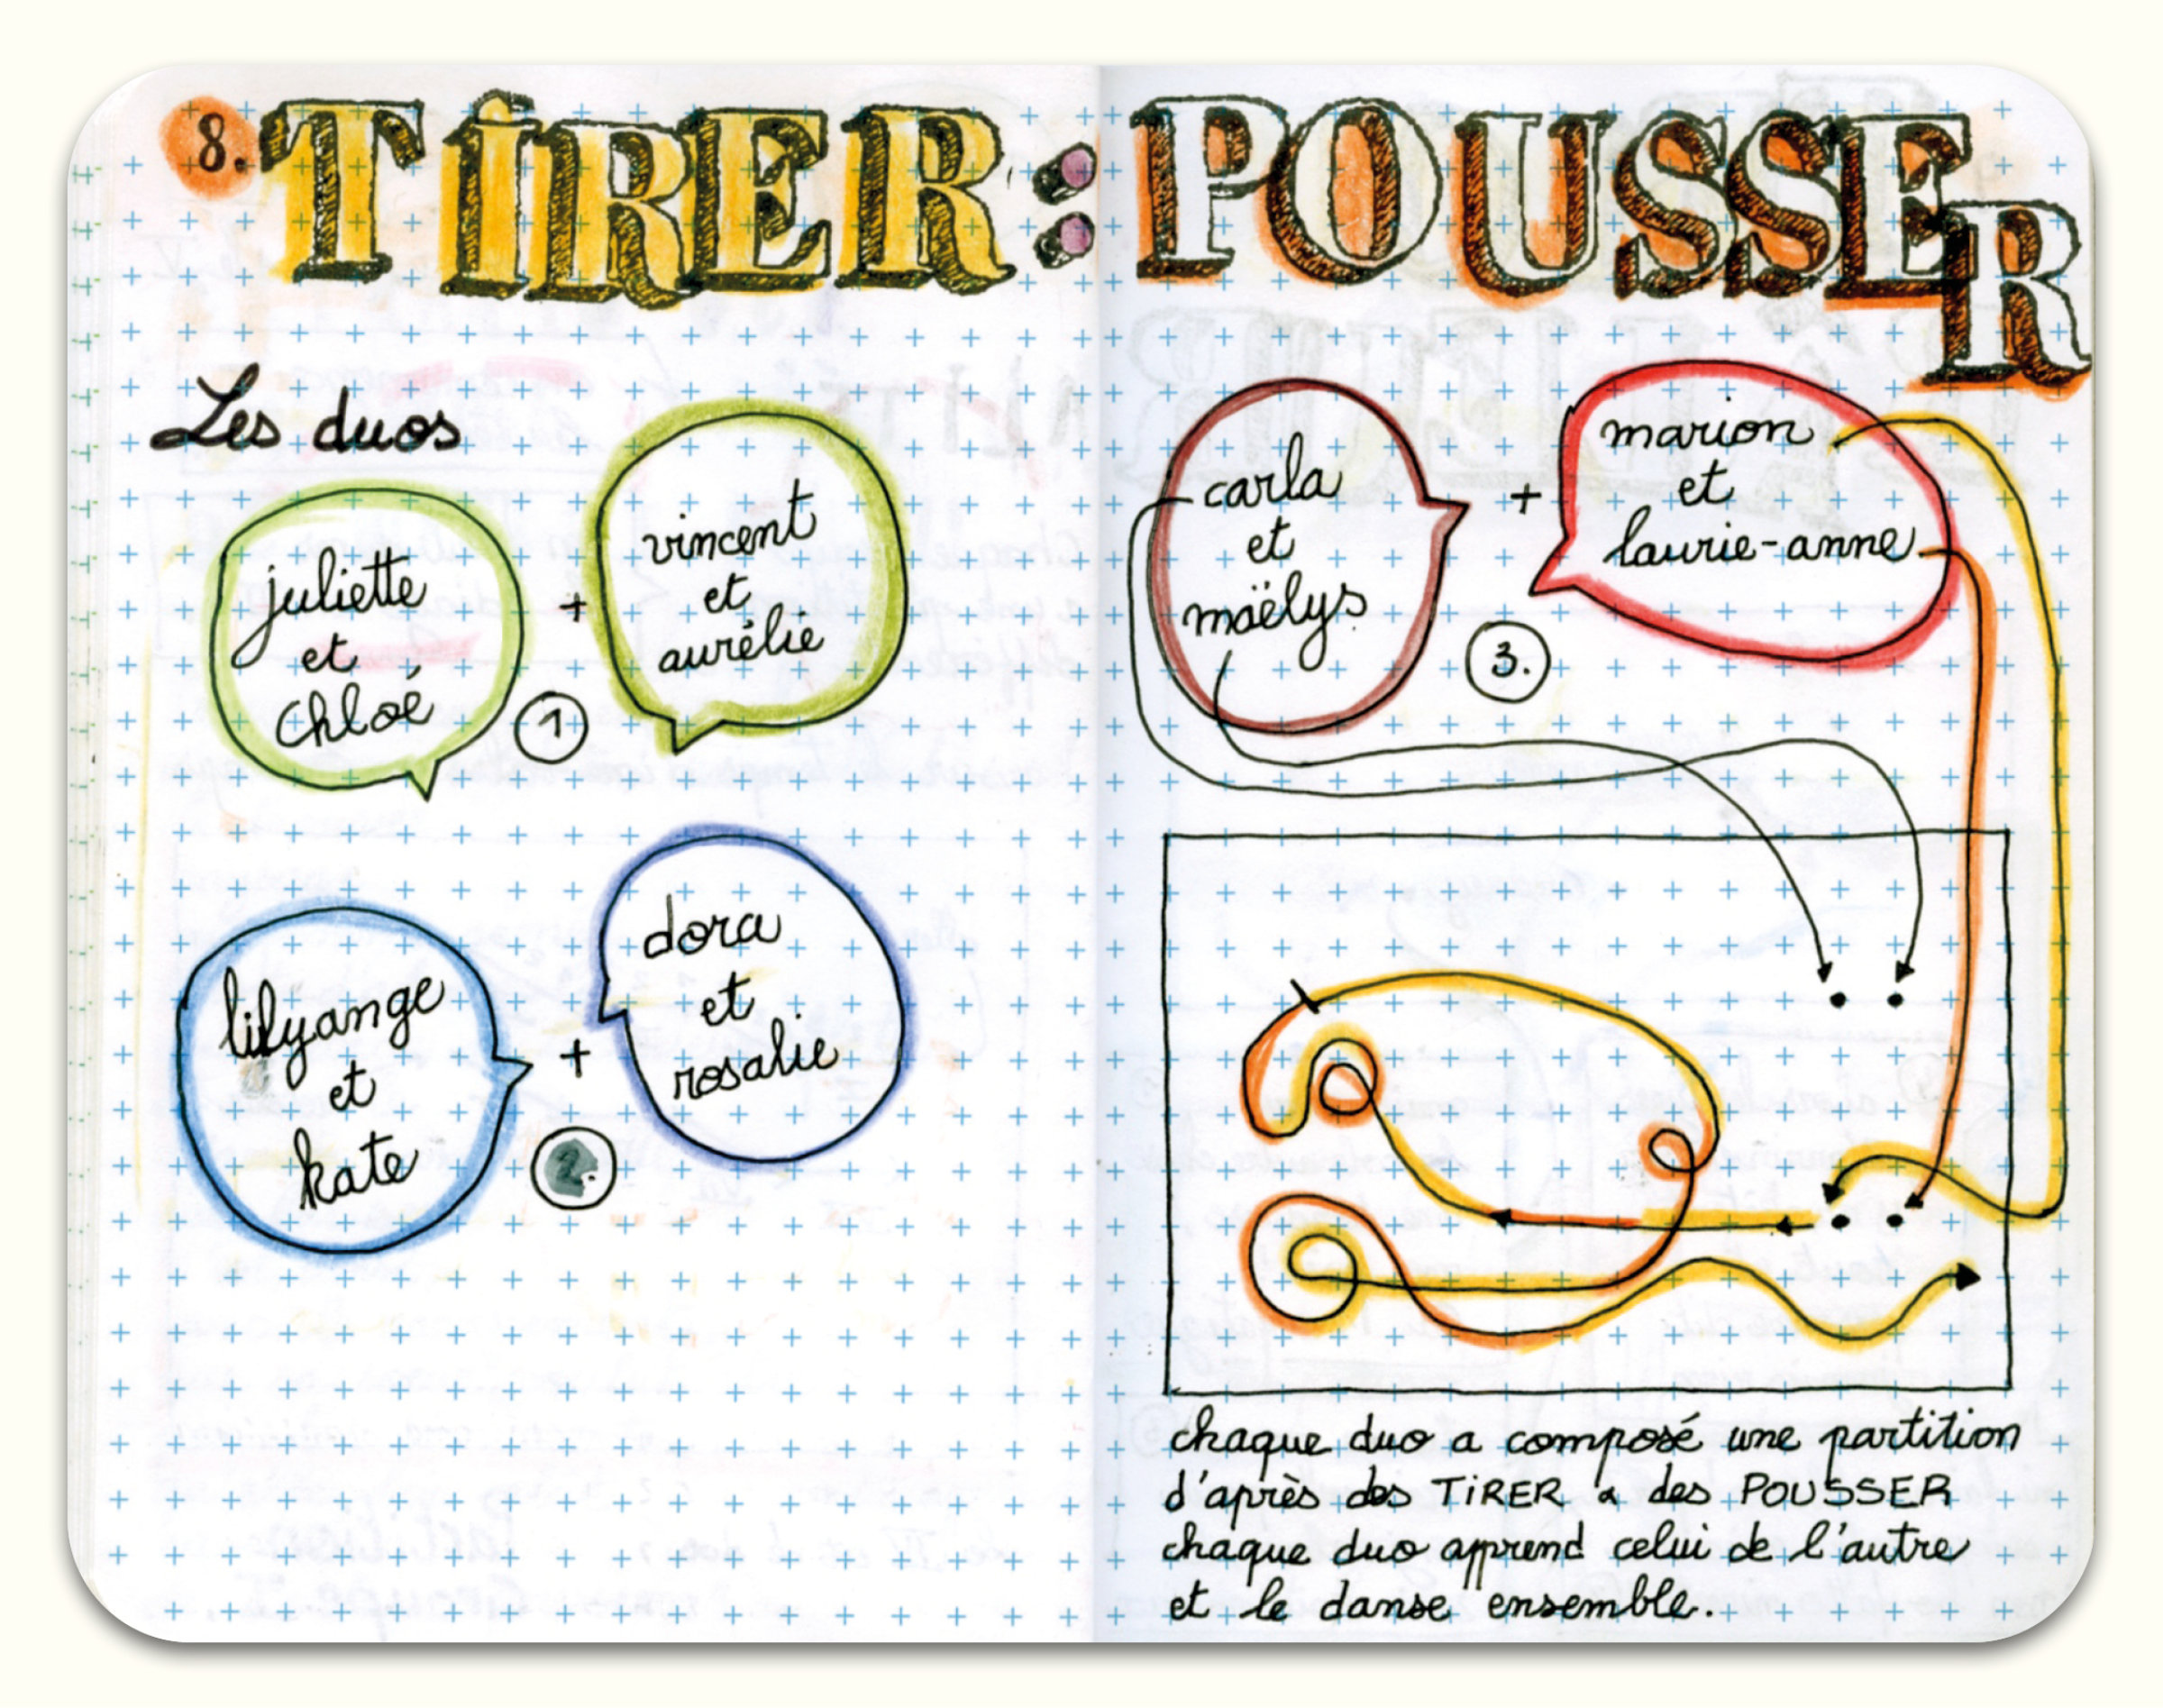 8. TIRER : POUSSER
Les duos
juliette
et
chloé
+
vincent
et
aurélie
1
lilyange
et
kate
+
dora
et
rosalie
2.
carla
et
maëlys
+
marion
et
laurie-anne
3.
chaque duo a composé une partition
d'après des TIRER & des POUSSER
chaque duo apprend celui de l'autre
et le danse ensemble.